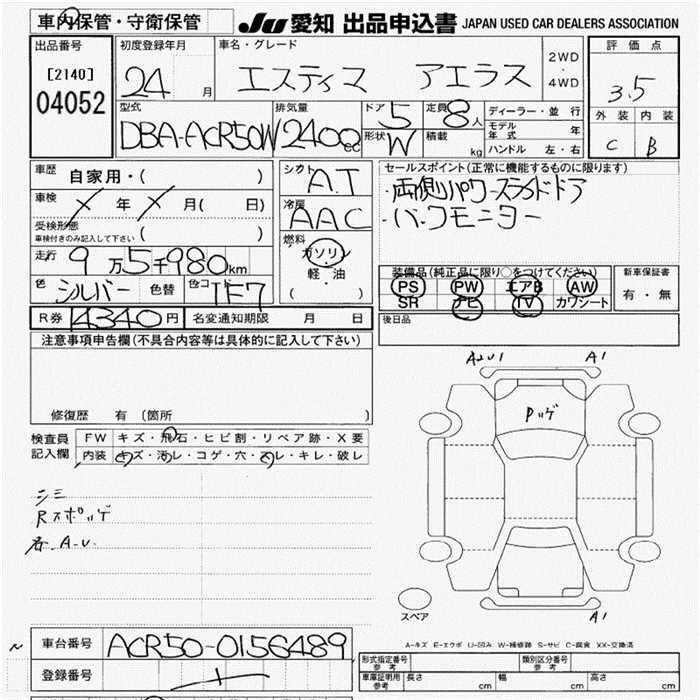 車内保管・守衛保管
JU 愛知 出品申込書 JAPAN USED CAR DEALERS ASSOCIATION
出品番号
[2140]
04052
初度登録年月
24 月
車名・グレード
エスティマ アエラス
2WD
・
4WD
評価点
3.5
外装 内装
C B
型式
DBA-ACR50W
排気量
2400cc
ドア 5
形状 W
定員 8人
積載 kg
ディーラー・並行
モデル年式 年
ハンドル 左・右
車歴
自家用・( )
車検 年 月( 日)
受検形態
車検付きのみ記入して下さい ( )
走行 9万5千980km
色 シルバー 色替 色コード 1F7
シフト AT
冷房 AAC
燃料
ガソリン
軽・油
( )
セールスポイント(正常に機能するものに限ります)
・両側パワースライドドア
・バックモニター
装備品(純正品に限り○をつけてください)
PS PW エアB AW
SR ナビ TV カワシート
新車保証書
有・無
R券 14340円 名変通知期限 月 日
後日品
注意事項申告欄(不具合内容等は具体的に記入して下さい)
修復歴 有(箇所 )
検査員記入欄
FW キズ・飛石・ヒビ割・リペア跡・X要
内装 キズ・汚レ・コゲ・穴・スレ・キレ・破レ
A2U1 A1
A1
スペア
A-キズ E-エクボ U-凹み W-補修跡 S-サビ C-腐食 XX-交換済
車台番号 ACR50-0156489
登録番号
形式指定番号 参考
類別区分番号 参考
車庫証明用 参考 長さ cm 幅 cm 高さ cm